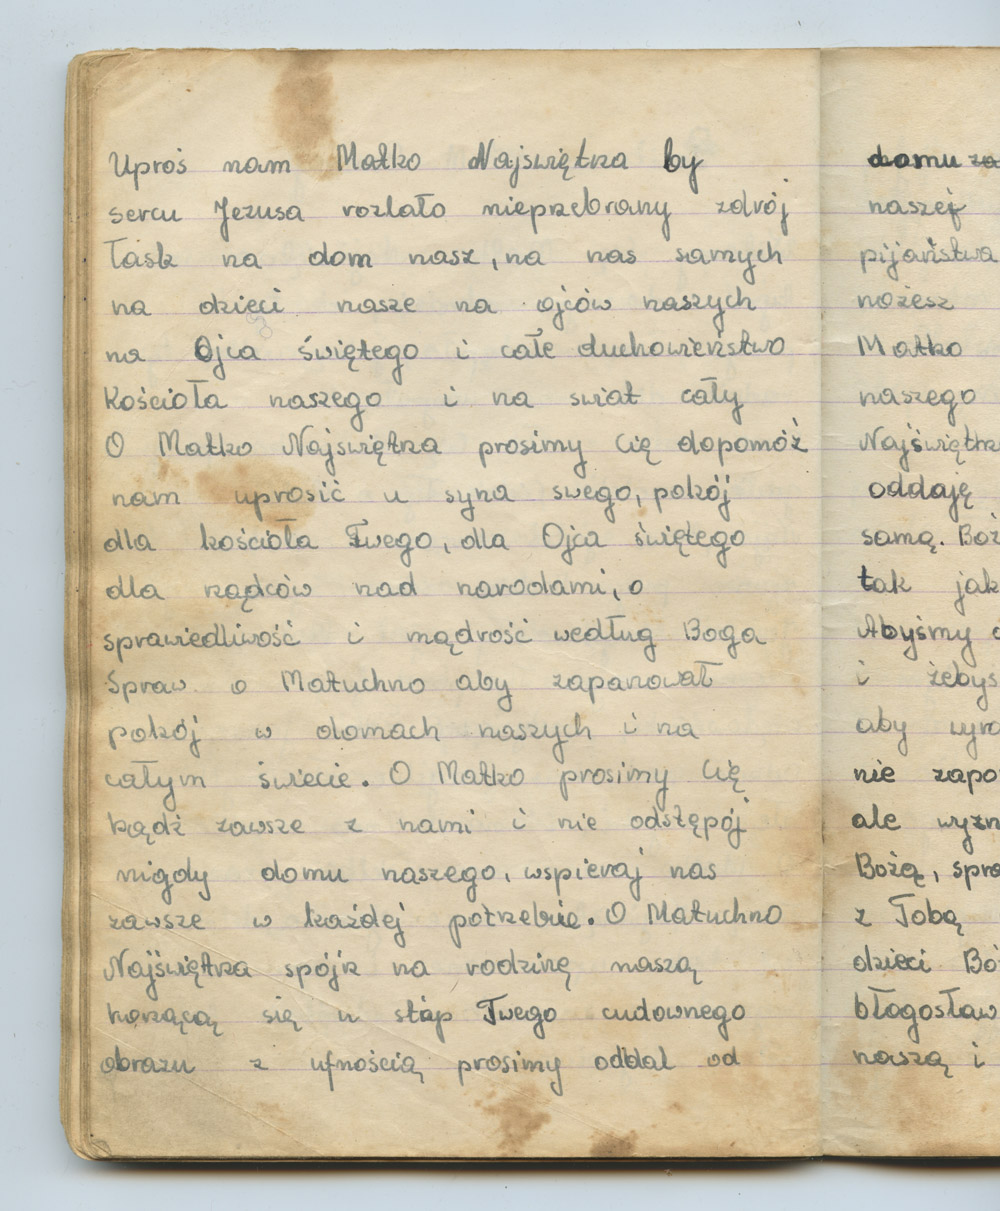 Uproś nam Matko Najswiętrza by
sercu Jezusa rozlało nieprzebrany zdrój
łask na dom nasz, na nas samych
na dzieci nasze na ojców naszych
na Ojca świętego i całe duchowieństwo
Kościoła naszego i na swiat cały
O Matko Najswiętrza prosimy Cię dopomóż
nam uprosić u syna swego, pokój
dla kościoła Twego, dla Ojca świętego
dla rządców nad narodami, o
sprawiedliwość i mądrość według Boga
Spraw o Matuchno aby zapanował
pokój w domach naszych i na
całym świecie. O Matko prosimy Cię
bądź zawsze z nami i nie odstępój
nigdy domu naszego, wspieraj nas
zawsze w każdej potrzebie. O Matuchno
Najświętrza spójrz na rodzinę naszą
korzącą się u stóp Twego cudownego
obrazu z ufnością prosimy oddal od
domu za
naszej
pijaństwa
możesz
Matko
naszego
Najświętrz
oddaję
samą. Boż
tak jak
Abyśmy
i żebyś
aby wyr
nie zapo
ale wyzn
Bożą, spra
z Tobą
dzieci Bo
błogosław
naszą i